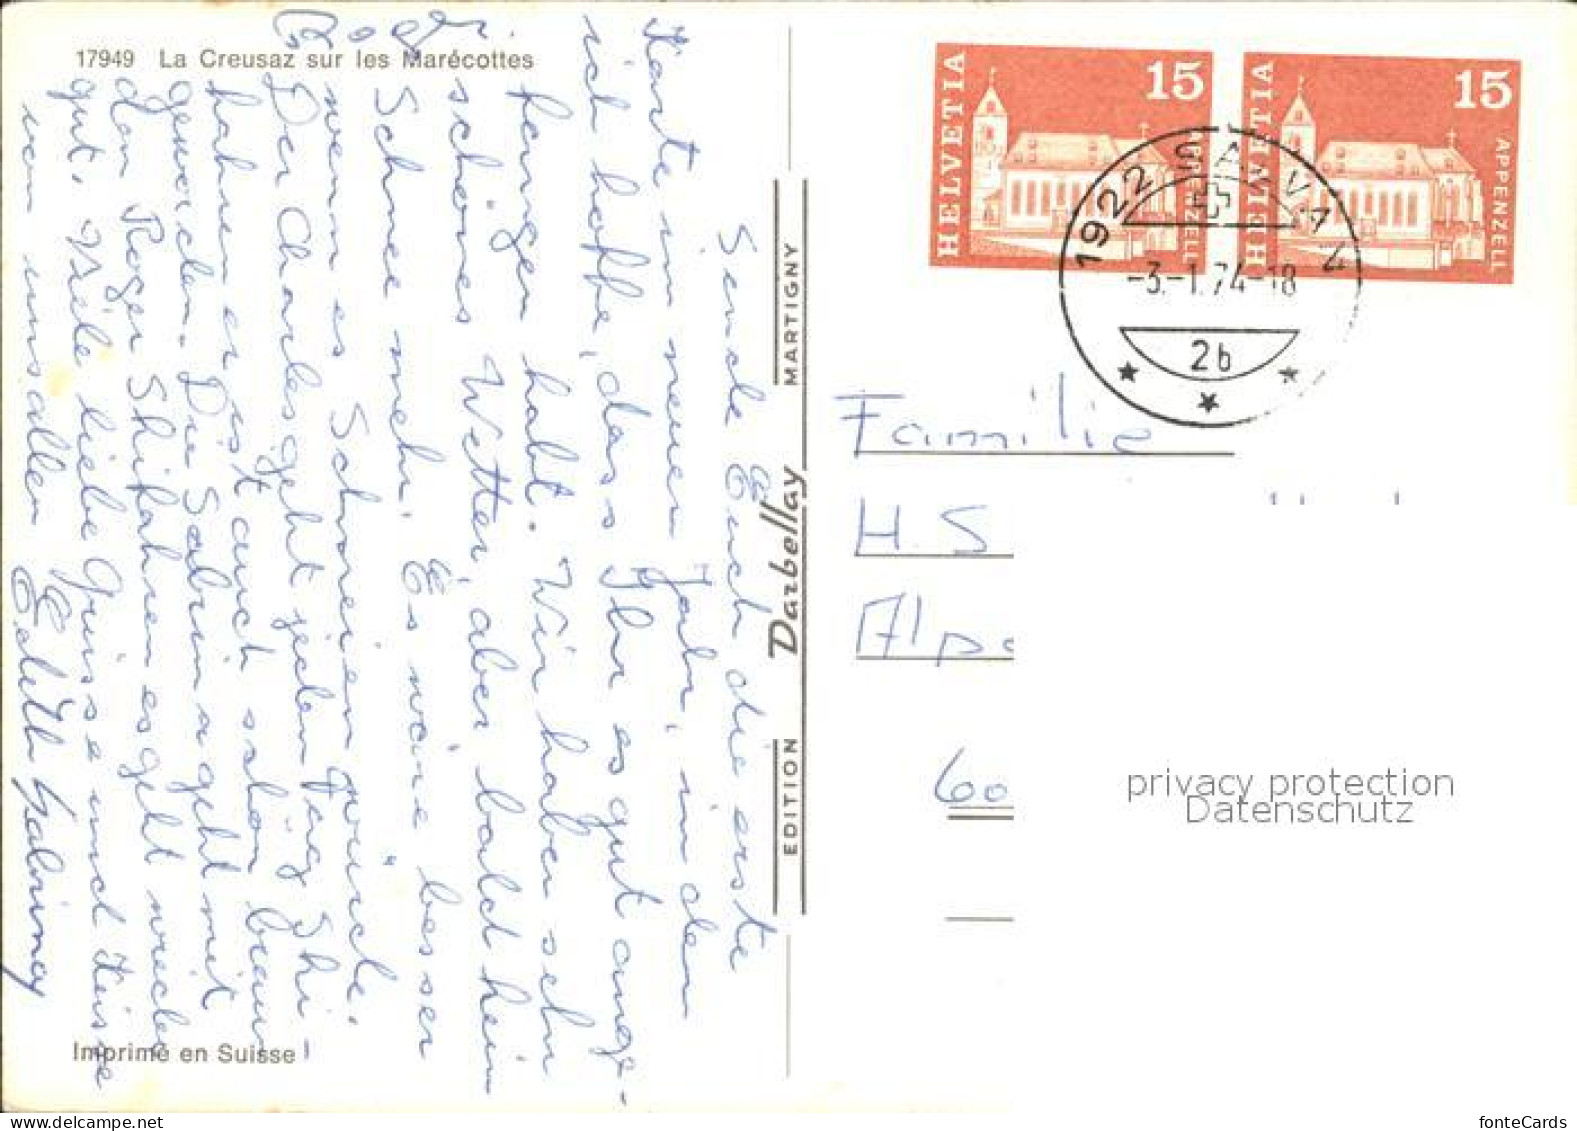 17949 La Creusaz sur les Marécottes
Sende Euch die erste
Karte im neuen Jahr, in dem
ich hoffe, dass Ihr es gut ange-
fangen habt. Wir haben sehr
schönes Wetter, aber bald kein
Schnee mehr. Es wäre besser
wenn es Schneien würde.
Der Charles geht jeden Tag Shi-
fahren er ist auch schon braun
geworden. Die Sabrina geht mit
dem Roger Shifahren es geht wieder
gut. Viele liebe Grüsse und Küsse
von uns allen Edith
Imprimé en Suisse
EDITION Darbellay MARTIGNY
HELVETIA 15
HELVETIA 15 APPENZELL
1922 SALVAN
-3.-1.74-18
2b
Familie
H. S
Alpe
60
privacy protection
Datenschutz
fonteCards